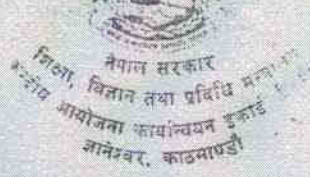 नेपाल सरकार
शिक्षा, विज्ञान तथा प्रविधि मन्त्रालय
केन्द्रीय आयोजना कार्यान्वयन इकाई
ज्ञानेश्वर, काठमाण्डौ